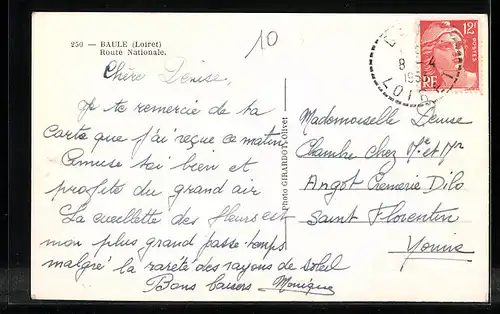 250 — BAULE (Loiret)
Route Nationale.
10
Chère Denise,
Je te remercie de ta
carte que j'ai reçue ce matin
Amuse toi bien et
profite du grand air
La cueillette des fleurs est
mon plus grand passe temps
malgré la rareté des rayons de soleil
Bons baisers Monique
Photo GIRARDOT, Olivet
12F
POSTES
RF
8-4
195
LOIRET
Mademoiselle Denise
Chambre chez Mr et Mme
Angot Cremerie Dilo
Saint Florentin
Yonne